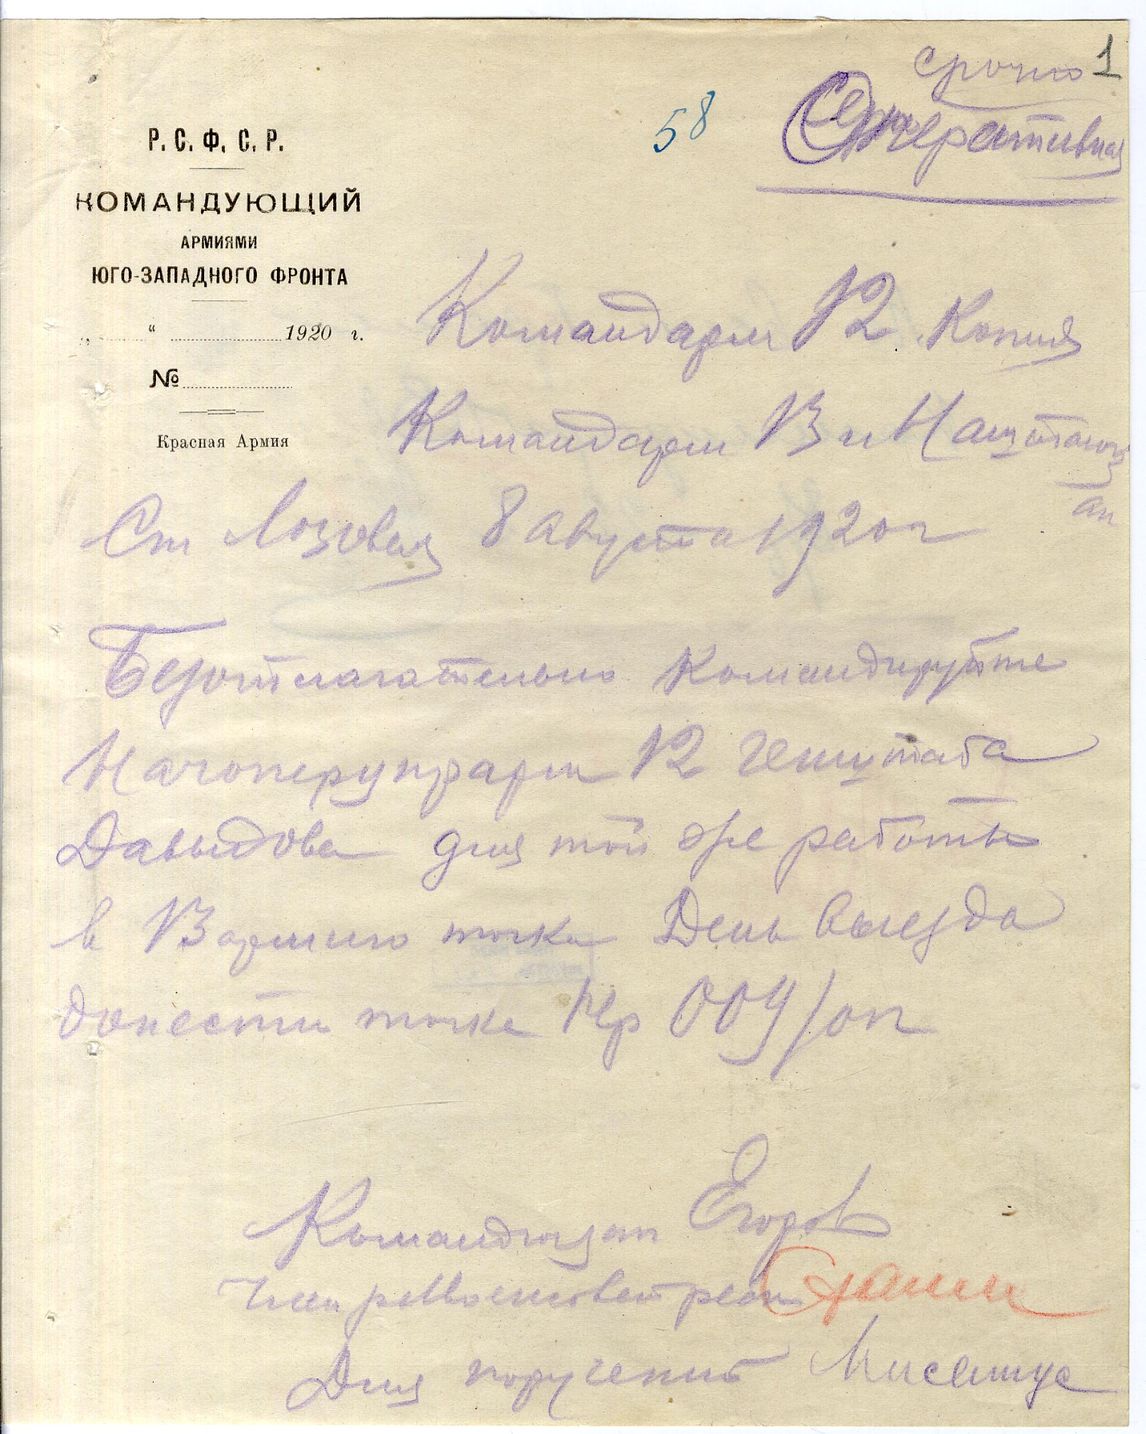 срочно 1
58
Оперативная
Р. С. Ф. С. Р.
КОМАНДУЮЩИЙ
АРМИЯМИ
ЮГО-ЗАПАДНОГО ФРОНТА
„ “ 1920 г.
№
Красная Армия
Командарм 12 Копия
Командарм 13 и
Ст Лозовая 8 августа 1920 г
Безотлагательно командируйте
Начоперупрарм 12 генштаба
Давыдова для той же работы
в 13 армию точка День выезда
донести точка Нр 009/оп
Командюзап Егоров
Член реввоенсовет Сталин
Для поручений